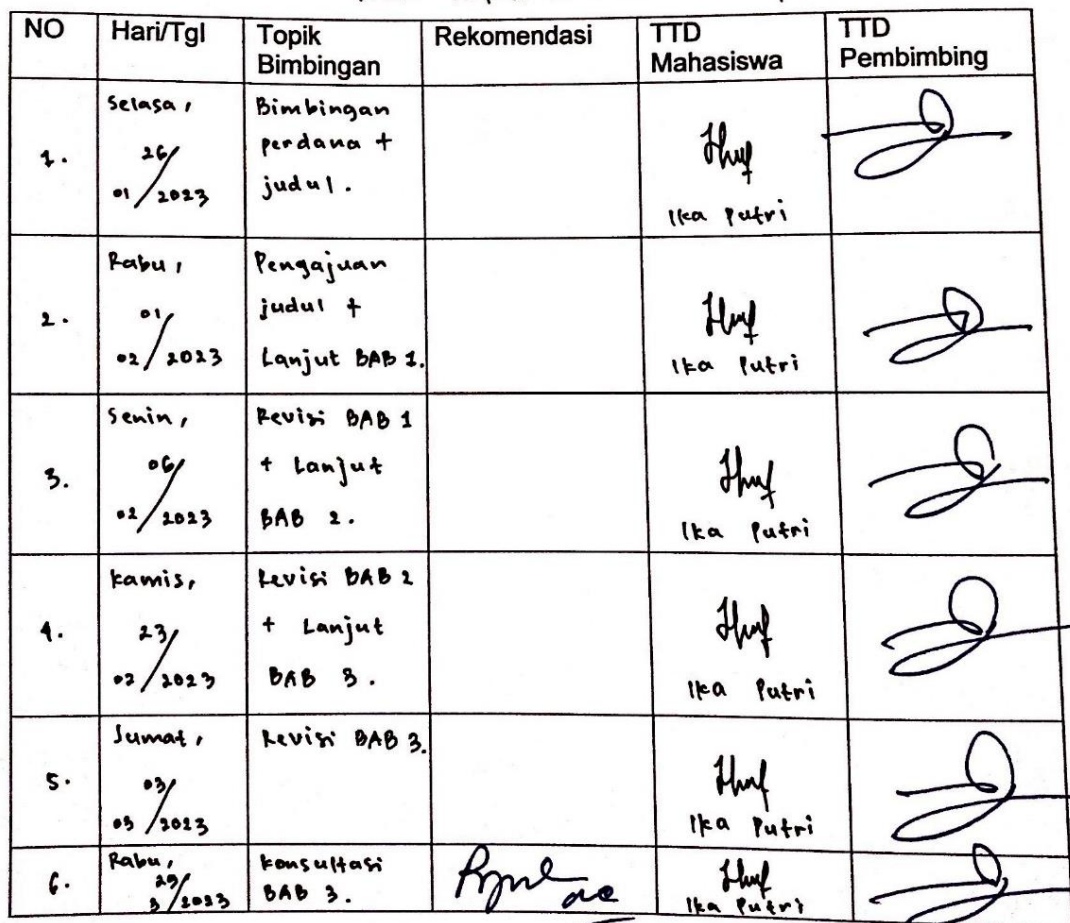 NO Hari/Tgl Topik Bimbingan Rekomendasi TTD Mahasiswa TTD Pembimbing
1. Selasa, 26/01/2023 Bimbingan perdana + judul. Ika Putri
2. Rabu, 01/02/2023 Pengajuan judul + Lanjut BAB 1. Ika Putri
3. Senin, 06/02/2023 Revisi BAB 1 + Lanjut BAB 2. Ika Putri
4. Kamis, 23/02/2023 Revisi BAB 2 + Lanjut BAB 3. Ika Putri
5. Jumat, 03/03/2023 Revisi BAB 3. Ika Putri
6. Rabu, 29/3/2023 Konsultasi BAB 3. Ika Putri